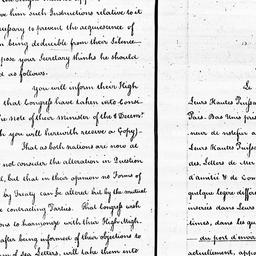 ve him such Instructions relative to it
cessary to prevent the acquiescence of
m being deducible from their Silence
pose your Secretary thinks he should
d as follows.
You will inform their High
that Congress have taken into Consi
the note of their Minister of the 4 Decemr
h you will herewith receive a Copy)
That as both nations are now at
not consider the alteration in Question
l, but that in their opinion no Forms of
by Treaty can be altered but by the mutual
he contracting Parties. That Congress wish
ons to harmonize with their High High
after being informed of their objections to
m of Sea Letters, will take them into
Le
Leurs Hautes Puissan
Pais-Bas Unis prie
neur de notifier a
Leurs Hautes Puissa
des Lettres de Mer
d'amitié & de Com
quelque legère differe
inserées dans Leurs
times, dans les qu
du port d'envir